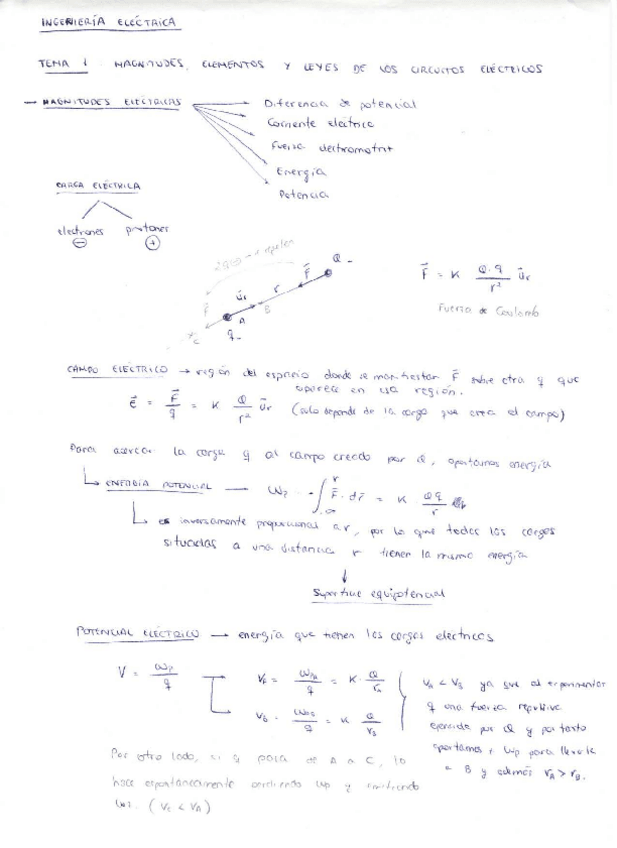 INGENIERÍA ELÉCTRICA
TEMA 1 MAGNITUDES, ELEMENTOS Y LEYES DE LOS CIRCUITOS ELÉCTRICOS
— MAGNITUDES ELÉCTRICAS
Diferencia de potencial
Corriente eléctrica
Fuerza electromotriz
Energía
Potencia
CARGA ELÉCTRICA
electrones protones
⊖ ⊕
Q -
F⃗
r
B
u⃗r
A
q -
F⃗
C
F⃗ = K Q·q / r² u⃗r
Fuerza de Coulomb
CAMPO ELÉCTRICO → región del espacio donde se manifiestan F⃗ sobre otra q que
aparece en esa región.
e⃗ = F⃗ / q = K Q / r² u⃗r (solo depende de la carga que crea el campo)
Para acercar la carga q al campo creado por Q, aportamos energía
ENERGÍA POTENCIAL — Wp = -∫ r ∞ F⃗ · dr⃗ = K · Qq / r
es inversamente proporcional a r, por lo que todas las cargas
situadas a una distancia r tienen la misma energía
↓
Superficie equipotencial
POTENCIAL ELÉCTRICO → energía que tienen las cargas eléctricas
V = Wp / q
= K · Q / rA
VB = / q = K Q / rB
VA < VB ya que al experimentar
q una fuerza repulsiva
ejercida por Q y por tanto
aportamos + Wp para llevarla
a B y además rA > rB.
Por otro lado, si q pasa de A a C, lo
hace espontáneamente perdiendo Wp y emitiendo
luz. (VC < VA)